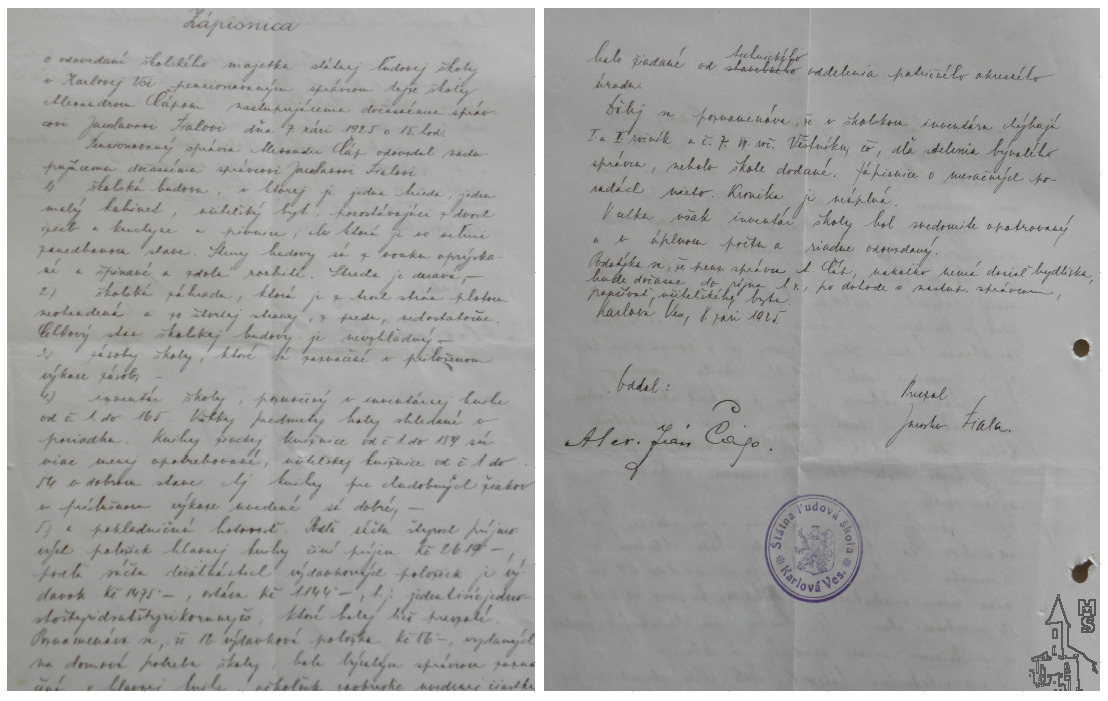 Zápisnica
o odovzdaní školského majetku štátnej ľudovej školy
v Karlovej Vsi pensionovaným správcom tejže školy
Alexandrom Čápom nastupujúcemu dočasnému správ-
covi Jaroslavovi Fialovi dňa 7. zári 1925 o 15. hod.
Pensionovaný správca Alexander Čáp odovzdal nastu-
pujúcemu dočasnému správcovi Jaroslavovi Fialovi:
1) školskú budovu, v ktorej je jedna trieda, jeden
malý kabinet, učiteľský byt, pozostávajúci z dvoch
izieb a kuchyne a pivnice, ale ktorá je vo veľmi
zanedbanom stave. Steny budovy sú z vonku oprýska-
né a špinavé a zdola rozbité. Strecha je deravá, —
2) školskú záhradu, ktorá je z troch strán plotom
neohradená a zo štvrtej strany, z predu, nedostatočne.
Celkový stav školskej budovy je nevzhľadný —
3) zásoby školy, ktoré sú zaznačené v priloženom
výkaze zásob, —
4) inventár školy, poznačený v inventárnej knihe
od č. 1 do 165. Všetky predmety boly shľadané v
poriadku. Knihy žiackej knižnice od č. 1 do 159 sú
viac menej opotrebované, učiteľskej knižnice od č. 1 do
54 v dobrom stave. Aj knihy pre chudobných žiakov
v príslušnom výkaze uvedené sú dobré, —
5) a pokladničnú hotovosť. Podľa súčtu štyroch príjmo-
vých položiek hlavnej knihy činí príjem Kč 2619 —,
podľa súčtu výdavkových položiek je vý-
davok Kč 1475 —, ostáva Kč 1144 —, t. j. jedentisícjedno-
stoštyridsaťštyrikorunyčs, ktoré boly tiež prevzaté.
Poznamenáva sa, že 12. výdavková položka Kč 86 —, vydaných
na domovú potrebu školy, bola bývalým správcom zazna-
čená v hlavnej knihe uvedenej čiastky
bolo žiadané od technického
stavebného oddelenia patričného okresného
úradu.
Ďalej sa poznamenáva, že v školskom inventári chýbajú
I. a II. ročník a č. 7. IV. roč. Věstníku, čo, dľa sdelenia bývalého
správcu, nebolo škole dodané. Zápisnice o mesačných po-
radách nieto. Kronika je neúplná.
V celku však inventár školy bol svedomite opatrovaný
a v úplnom počtu a riadne odovzdaný.
Podotýka sa, že penz. správca A. Čáp, nakoľko nemá dosiaľ bydliska,
bude dočasne do októbra t. r., po dohode s nastup. správcom,
používať učiteľského bytu.
Karlova Ves, 8. zári 1925.
Oddal:
Prevzal
Alex. Ján Čáp.
Jaroslav Fiala.
Štátna ľudová škola
Karlová Ves.
MS